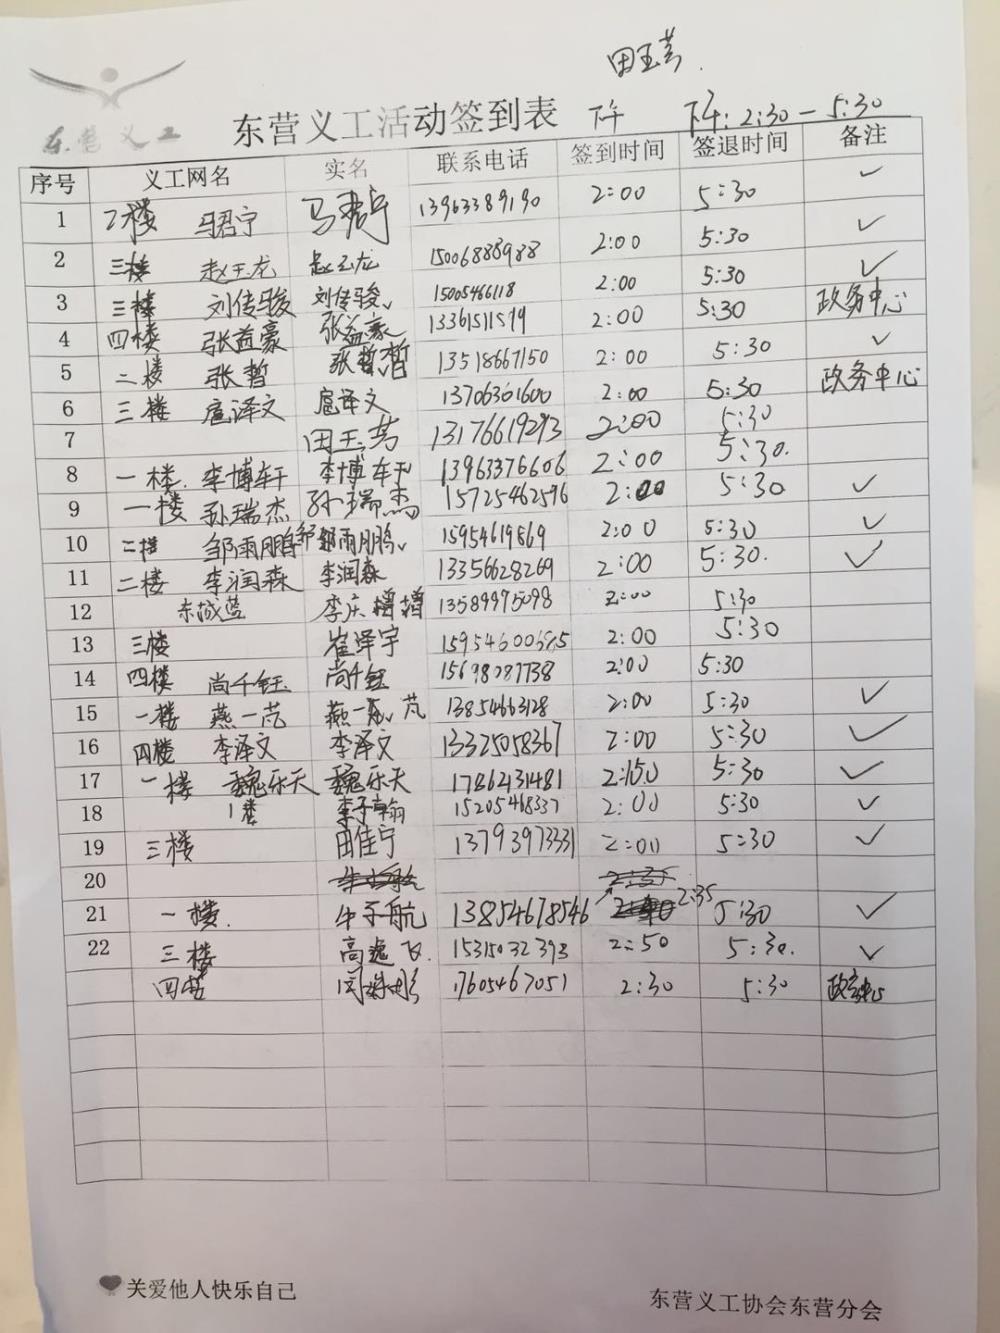 田玉芳.
东营义工
东营义工活动签到表 下午 下午: 2:30 — 5:30
序号 义工网名 实名 联系电话 签到时间 签退时间 备注
1 2楼 马君宁 马君宁 13963389190 2:00 5:30 ✓
2 三楼 赵玉龙 赵玉龙 15006888988 2:00 5:30 ✓
3 三楼 刘传骏 刘传骏 15005466118 2:00 5:30 ✓
4 四楼 张益豪 张益豪 13361511579 2:00 5:30 政务中心
5 二楼 张哲 张哲 13518667150 2:00 5:30 ✓
6 三楼 扈泽文 扈泽文 13706361600 2:00 5:30 政务中心
7 田玉芳 13176619293 2:00 5:30
8 一楼. 李博轩 李博轩 13963376606 2:00 5:30.
9 一楼 孙瑞杰 孙瑞杰 15725462596 2:00 5:30 ✓
10 二楼 邹雨鹏 邹雨鹏 15954619869 2:00 5:30 ✓
11 二楼 李润森 李润森 13356628269 2:00 5:30. ✓
12 东城蓝 李庆增 13589975098 2:00 5:30
13 三楼 崔泽宇 15954600685 2:00 5:30
14 四楼 尚千钰 尚千钰 15698087738 2:00 5:30
15 一楼 燕一芃 燕一芃 13854663128 2:00 5:30 ✓
16 四楼 李泽文 李泽文 13325058367 2:00 5:30 ✓
17 一楼 魏乐天 魏乐天 17862431481 2:50 5:30 ✓
18 1楼 李子翰 15205468337 2:00 5:30 ✓
19 三楼 田佳宁 13793973331 2:00 5:30 ✓
20
21 一楼. 牛子航 13854678546 2:35 5:30 ✓
22 三楼 高逸飞. 15315032398 2:50 5:30. ✓
四楼 闫姝彤 17605467051 2:30 5:30 政务中心
关爱他人快乐自己
东营义工协会东营分会